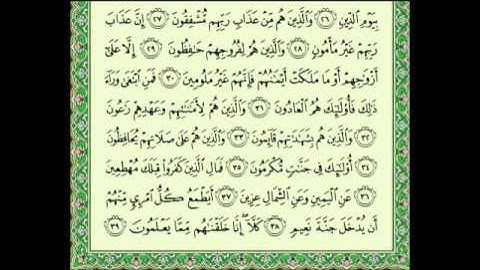 بِيَوْمِ الدِّينِ ٢٦ وَالَّذِينَ هُم مِّنْ عَذَابِ رَبِّهِم مُّشْفِقُونَ ٢٧ إِنَّ عَذَابَ
رَبِّهِمْ غَيْرُ مَأْمُونٍ ٢٨ وَالَّذِينَ هُمْ لِفُرُوجِهِمْ حَافِظُونَ ٢٩ إِلَّا عَلَىٰ
أَزْوَاجِهِمْ أَوْ مَا مَلَكَتْ أَيْمَانُهُمْ فَإِنَّهُمْ غَيْرُ مَلُومِينَ ٣٠ فَمَنِ ابْتَغَىٰ وَرَاءَ
ذَٰلِكَ فَأُولَٰئِكَ هُمُ الْعَادُونَ ٣١ وَالَّذِينَ هُمْ لِأَمَانَاتِهِمْ وَعَهْدِهِمْ رَاعُونَ
٣٢ وَالَّذِينَ هُم بِشَهَادَاتِهِمْ قَائِمُونَ ٣٣ وَالَّذِينَ هُمْ عَلَىٰ صَلَاتِهِمْ يُحَافِظُونَ
٣٤ أُولَٰئِكَ فِي جَنَّاتٍ مُّكْرَمُونَ ٣٥ فَمَالِ الَّذِينَ كَفَرُوا قِبَلَكَ مُهْطِعِينَ
٣٦ عَنِ الْيَمِينِ وَعَنِ الشِّمَالِ عِزِينَ ٣٧ أَيَطْمَعُ كُلُّ امْرِئٍ مِّنْهُمْ
أَن يُدْخَلَ جَنَّةَ نَعِيمٍ ٣٨ كَلَّا إِنَّا خَلَقْنَاهُم مِّمَّا يَعْلَمُونَ ٣٩